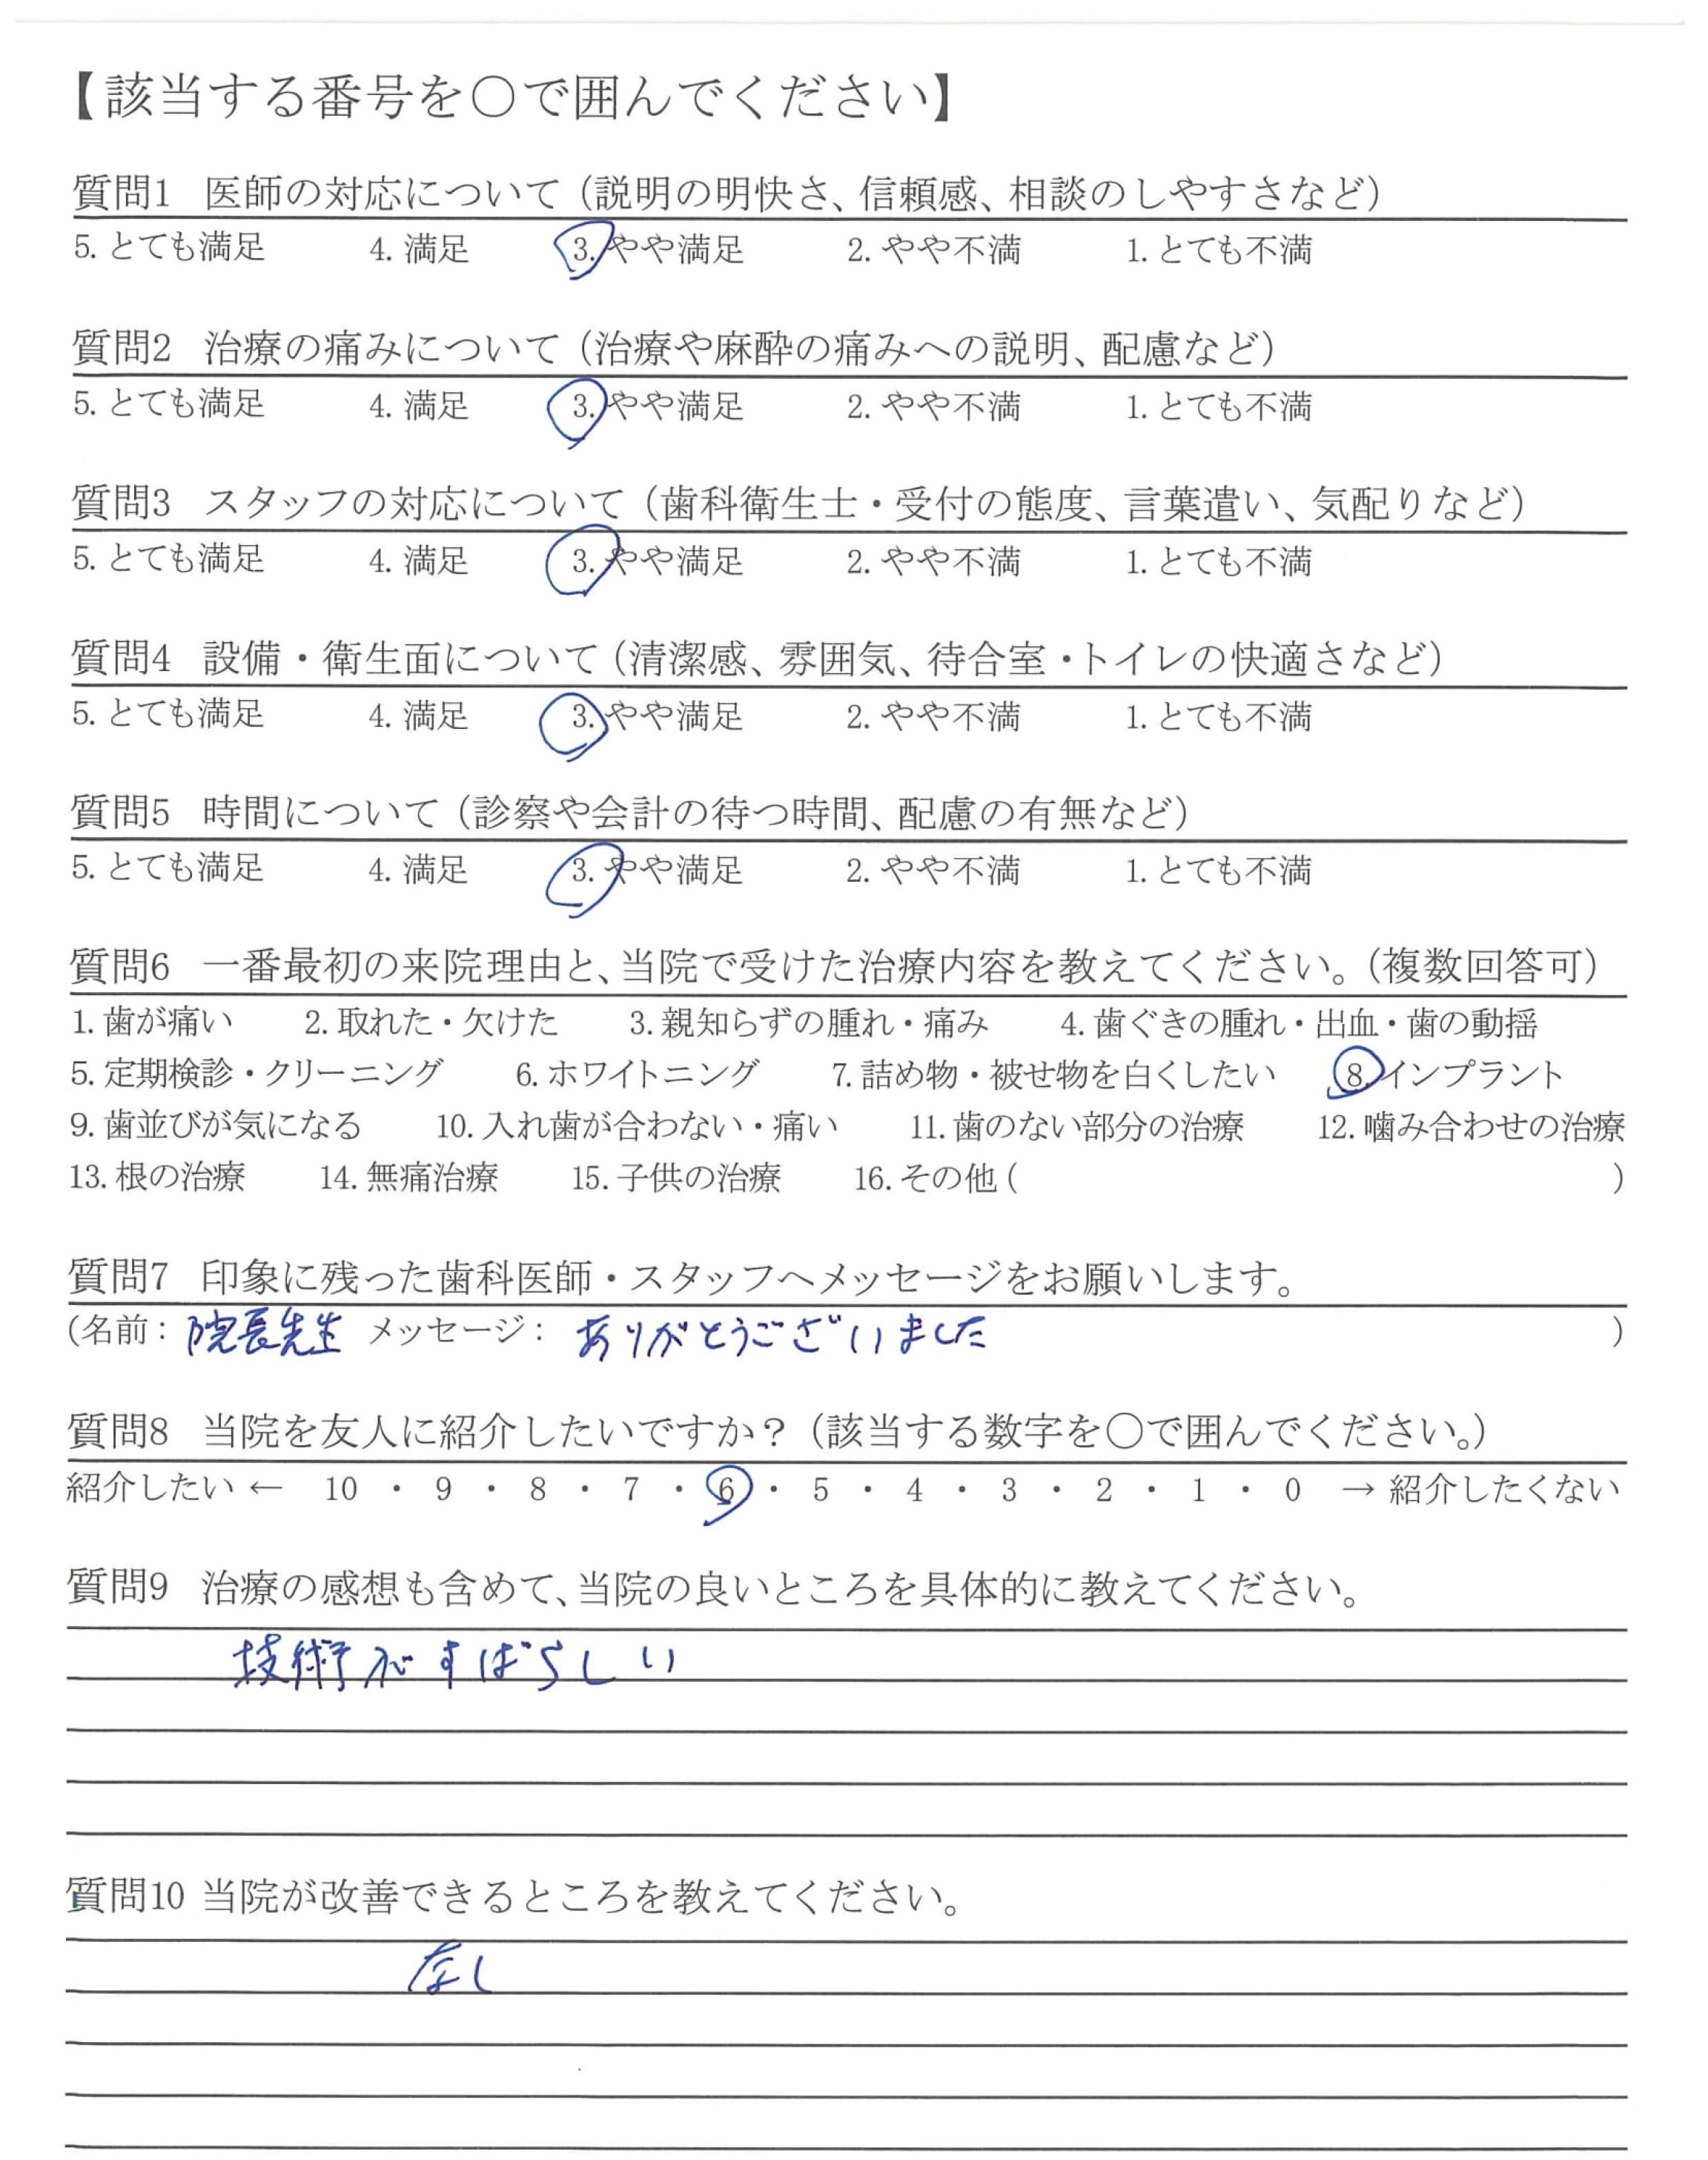 【該当する番号を〇で囲んでください】
質問1 医師の対応について（説明の明快さ、信頼感、相談のしやすさなど）
5. とても満足 4. 満足 3. やや満足 2. やや不満 1. とても不満
質問2 治療の痛みについて（治療や麻酔の痛みへの説明、配慮など）
5. とても満足 4. 満足 3. やや満足 2. やや不満 1. とても不満
質問3 スタッフの対応について（歯科衛生士・受付の態度、言葉遣い、気配りなど）
5. とても満足 4. 満足 3. やや満足 2. やや不満 1. とても不満
質問4 設備・衛生面について（清潔感、雰囲気、待合室・トイレの快適さなど）
5. とても満足 4. 満足 3. やや満足 2. やや不満 1. とても不満
質問5 時間について（診察や会計の待つ時間、配慮の有無など）
5. とても満足 4. 満足 3. やや満足 2. やや不満 1. とても不満
質問6 一番最初の来院理由と、当院で受けた治療内容を教えてください。（複数回答可）
1. 歯が痛い 2. 取れた・欠けた 3. 親知らずの腫れ・痛み 4. 歯ぐきの腫れ・出血・歯の動揺
5. 定期検診・クリーニング 6. ホワイトニング 7. 詰め物・被せ物を白くしたい 8. インプラント
9. 歯並びが気になる 10. 入れ歯が合わない・痛い 11. 歯のない部分の治療 12. 噛み合わせの治療
13. 根の治療 14. 無痛治療 15. 子供の治療 16. その他 ( )
質問7 印象に残った歯科医師・スタッフへメッセージをお願いします。
（名前： 院長先生 メッセージ： ありがとうございました ）
質問8 当院を友人に紹介したいですか？（該当する数字を〇で囲んでください。）
紹介したい ← 10 ・ 9 ・ 8 ・ 7 ・ 6 ・ 5 ・ 4 ・ 3 ・ 2 ・ 1 ・ 0 → 紹介したくない
質問9 治療の感想も含めて、当院の良いところを具体的に教えてください。
技術がすばらしい
質問10 当院が改善できるところを教えてください。
なし